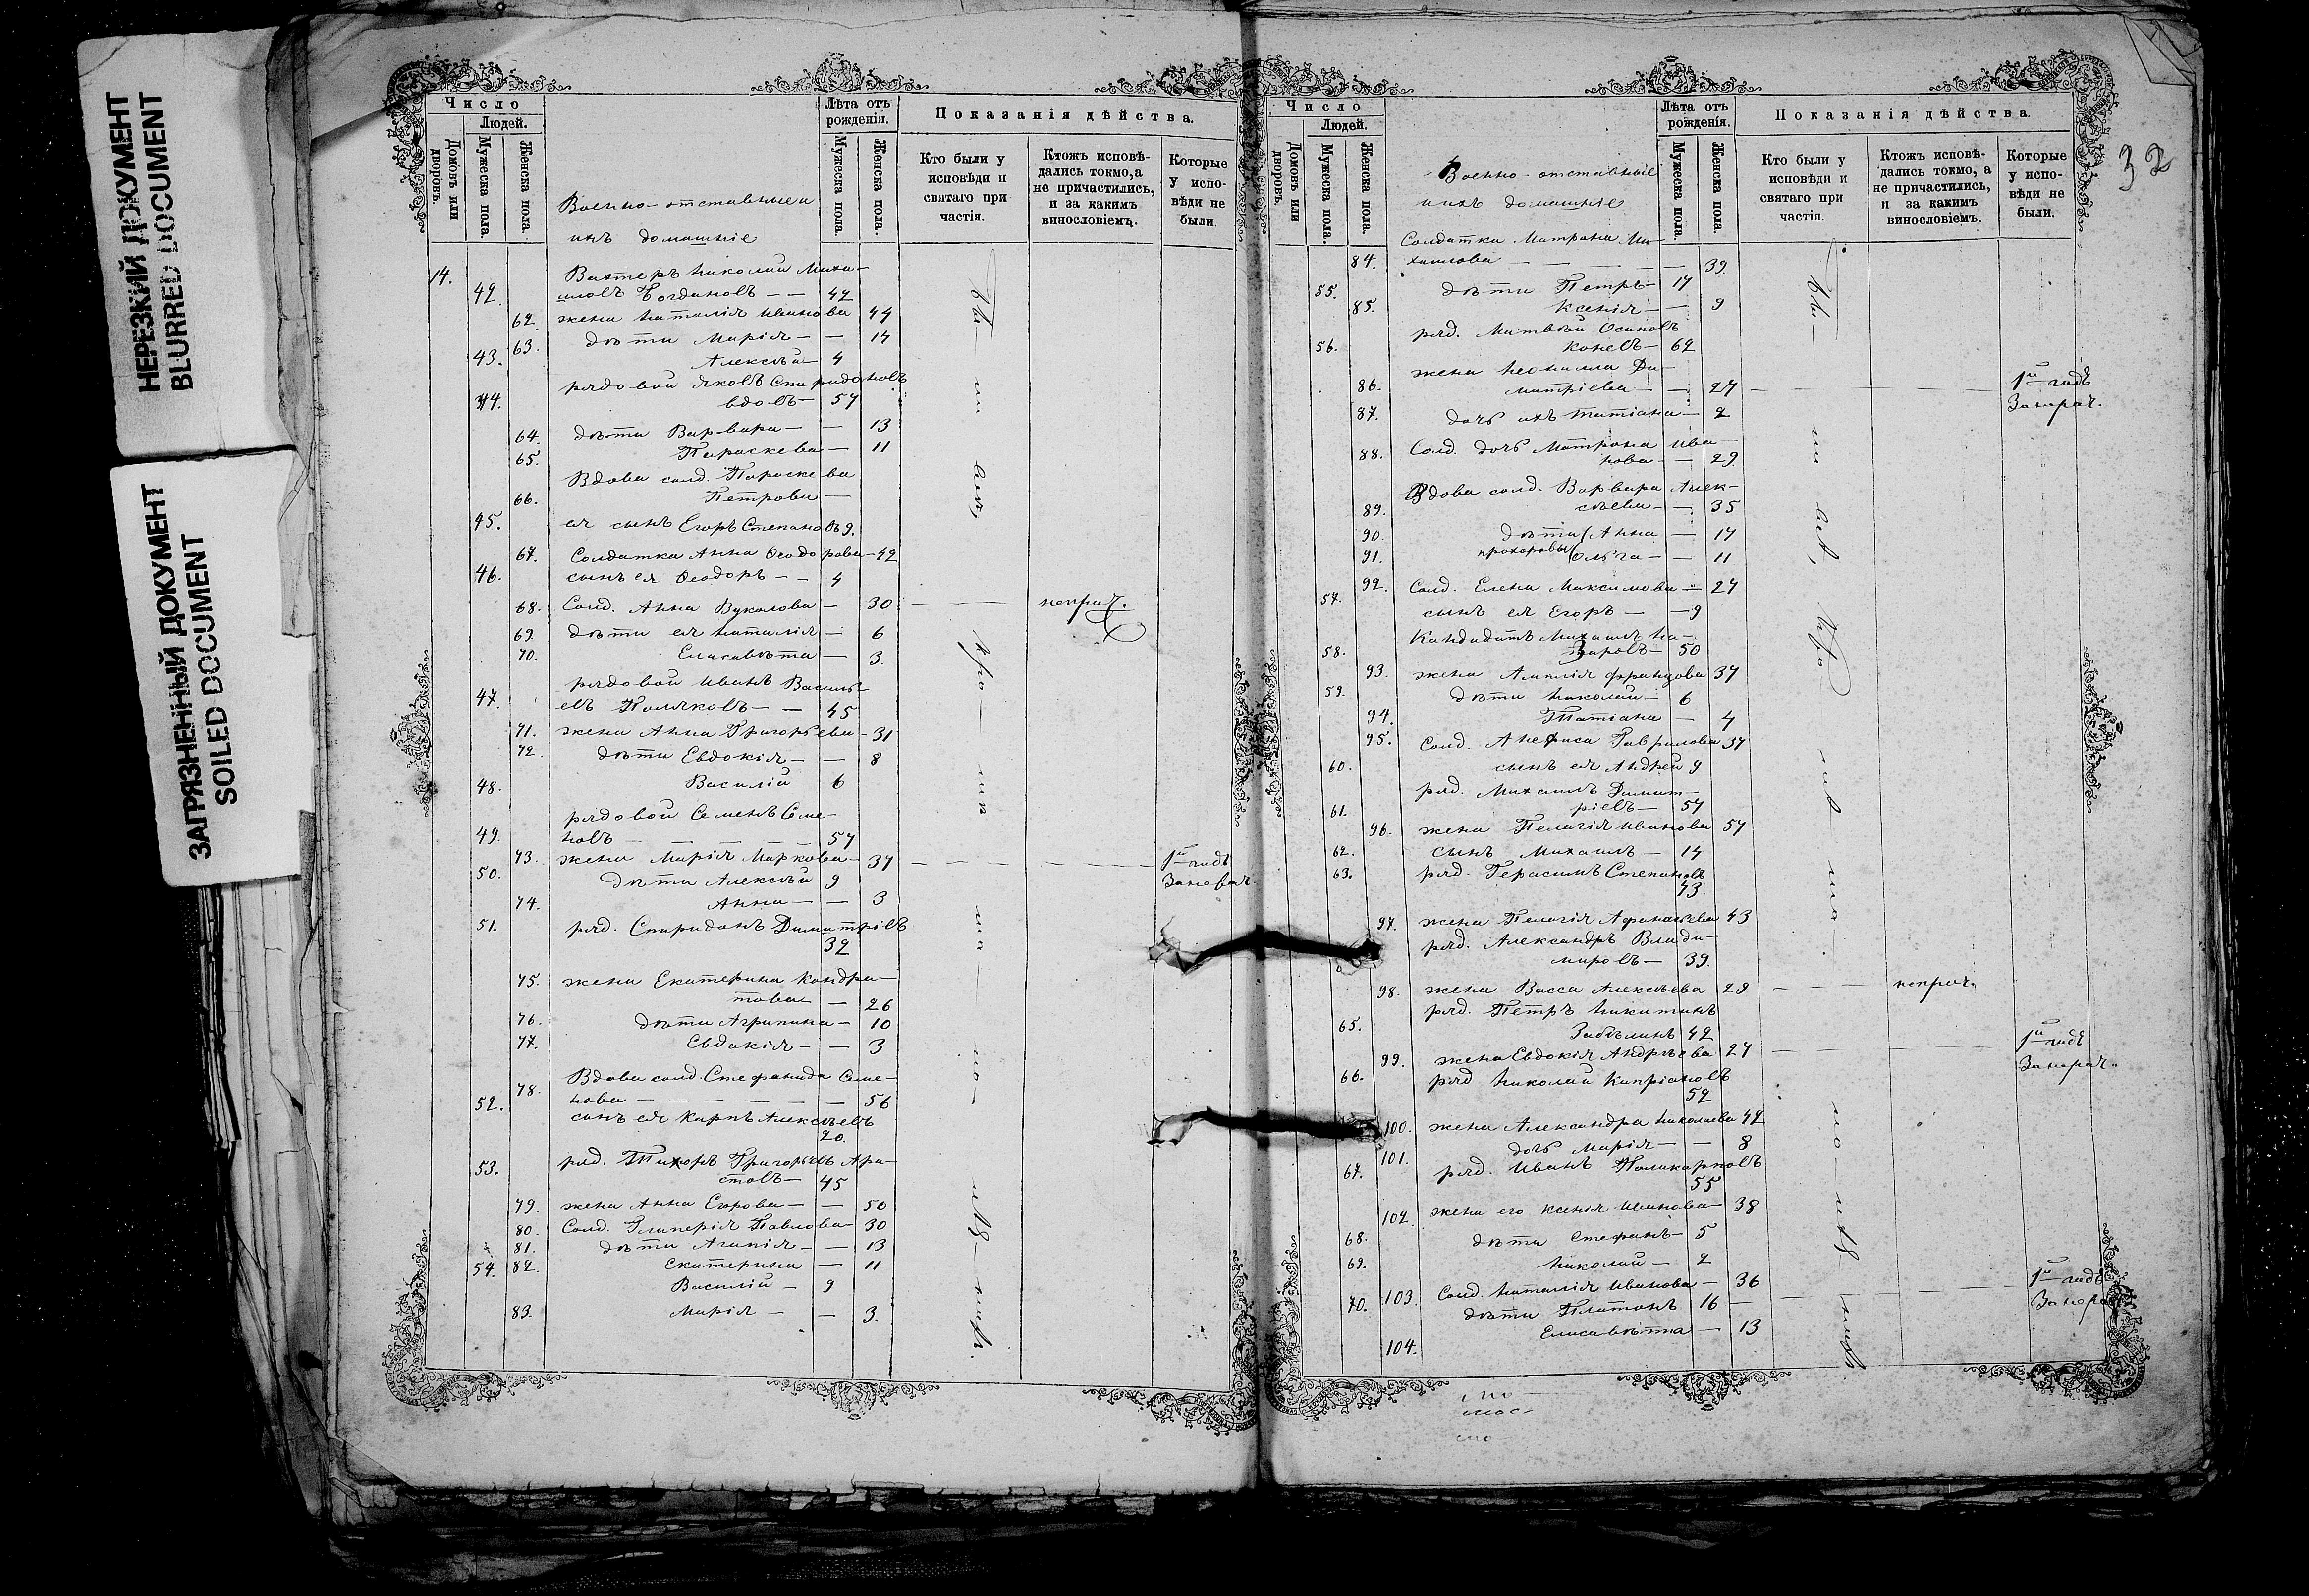 НЕРЕЗКИЙ ДОКУМЕНТ
BLURRED DOCUMENT
ЗАГРЯЗНЕННЫЙ ДОКУМЕНТ
SOILED DOCUMENT
Число
Людей.
Домовъ или дворовъ.
Мужеска пола.
Женска пола.
Военно-отставные и
ихъ домашніе
Лѣта отъ рожденія.
Мужеска пола.
Женска пола.
Показанія дѣйства.
Кто были у исповѣди и святаго при частія.
Ктожъ исповѣ-дались токмо, а не причастились, и за какимъ винословіемъ.
Которые у испо-вѣди не были.
14. Вахтеръ Николай Михаи-
42. ловъ Богдановъ — — 42
62. жена Наталія Иванова 44
63. дѣти Марія — — 14
43. Алексѣй — 4
рядовой Яковъ Спиридоновъ
44. вдовъ — 57
64. дѣти Варвара — — 13
65. Параскева — 11
Вдова солд. Параскева
66. Петрова —
45. ея сынъ Егоръ Степановъ 9.
67. Солдатка Анна Ѳеодорова — 42
46. сынъ ея Ѳеодоръ — — 4
68. Солд. Анна Вуколова — 30 — — неприч.
69. дѣти ея Наталія — 6
70. Елисавѣта — 3.
рядовой Иванъ Василь-
47. евъ Поляковъ — — 45
71. жена Анна Григорьева — 31
72. дѣти Евдокія — — 8
48. Василій 6
рядовой Семенъ Семе-
49. новъ — — — — 57
73. жена Марія Маркова — 37 — — — — — 1й годъ
50. дѣти Алексѣй 9
74. Анна — — 3
51. ряд. Спиридонъ Димитріевъ
32
75. жена Екатерина Кондра-
това — 26
76. дѣти Агрипина — 10
77. Евдокія — — 3
Вдова солд. Стефанида Семе-
78. нова — — — — — 56
52. сынъ ея Карпъ Алексѣевъ
20.
53. ряд. Тихонъ Григорьевъ Ари-
стовъ — 45
79. жена Анна Егорова — — 50
80. Солд. Гликерія Павлова — 30
81. дѣти Агапія — — 13
82. Екатерина — 11
54. Василій — 9
83. Марія — — 3.
32
Число
Людей.
Домовъ или дворовъ.
Мужеска пола.
Женска пола.
Военно-отставные
и ихъ домашніе
Лѣта отъ рожденія.
Мужеска пола.
Женска пола.
Показанія дѣйства.
Кто были у исповѣди и святаго при частія.
Ктожъ исповѣ-дались токмо, а не причастились, и за какимъ винословіемъ.
Которые у испо-вѣди не были.
Солдатка Матрона Ми-
84. хаилова — — — — — 39.
55. дѣти Петръ — 17
85. Ксенія — — 9
ряд. Матвѣй Осиповъ
56. Коневъ — 62
жена Неонилла Ди-
86. митріева — — 27 — — — 1й годъ
87. дочь ихъ Татіана — 2
Солд. дочь Матрона Ива-
88. нова — — 29.
Вдова солд. Варвара Алек-
89. сѣева — — 35
90. дѣти Анна — 17
91. Прохоровы Ольга — — 11
92. Солд. Елена Максимова — 27
57. сынъ ея Егоръ — — 9
Кандидатъ Михаилъ На-
58. заровъ — 50
93. жена Амалія Францова 37
59. дѣти Николай — 6
94. Татіана — 4
95. Солд. Анфиса Гаврилова 37
60. сынъ ея Андрей 9
ряд. Михаилъ Димит-
61. ріевъ — 57
96. жена Пелагія Иванова 57
62. сынъ Михаилъ — 14
63. ряд. Герасимъ Степановъ
43
97. жена Пелагія Афанасьева 43
ряд. Александръ Влади-
мировъ — 39.
98. жена Васса Алексѣева 29 — — — неприч.
ряд. Петръ Никитинъ
65. Забѣлинъ 42
99. жена Евдокія Андреева 27 — — — 1й годъ
66. ряд Николай Кипріановъ
52
100. жена Александра Николаева 42
101. дочь Марія — — 8
67. ряд. Иванъ Поликарповъ
55
102. жена его Ксенія Иванова — 38
68. дѣти Стефанъ — 5
69. Николай — 2
103. Солд. Наталія Иванова — 36 — — — 1й годъ
70. дѣти Платонъ 16 —
104. Елисавѣта — 13